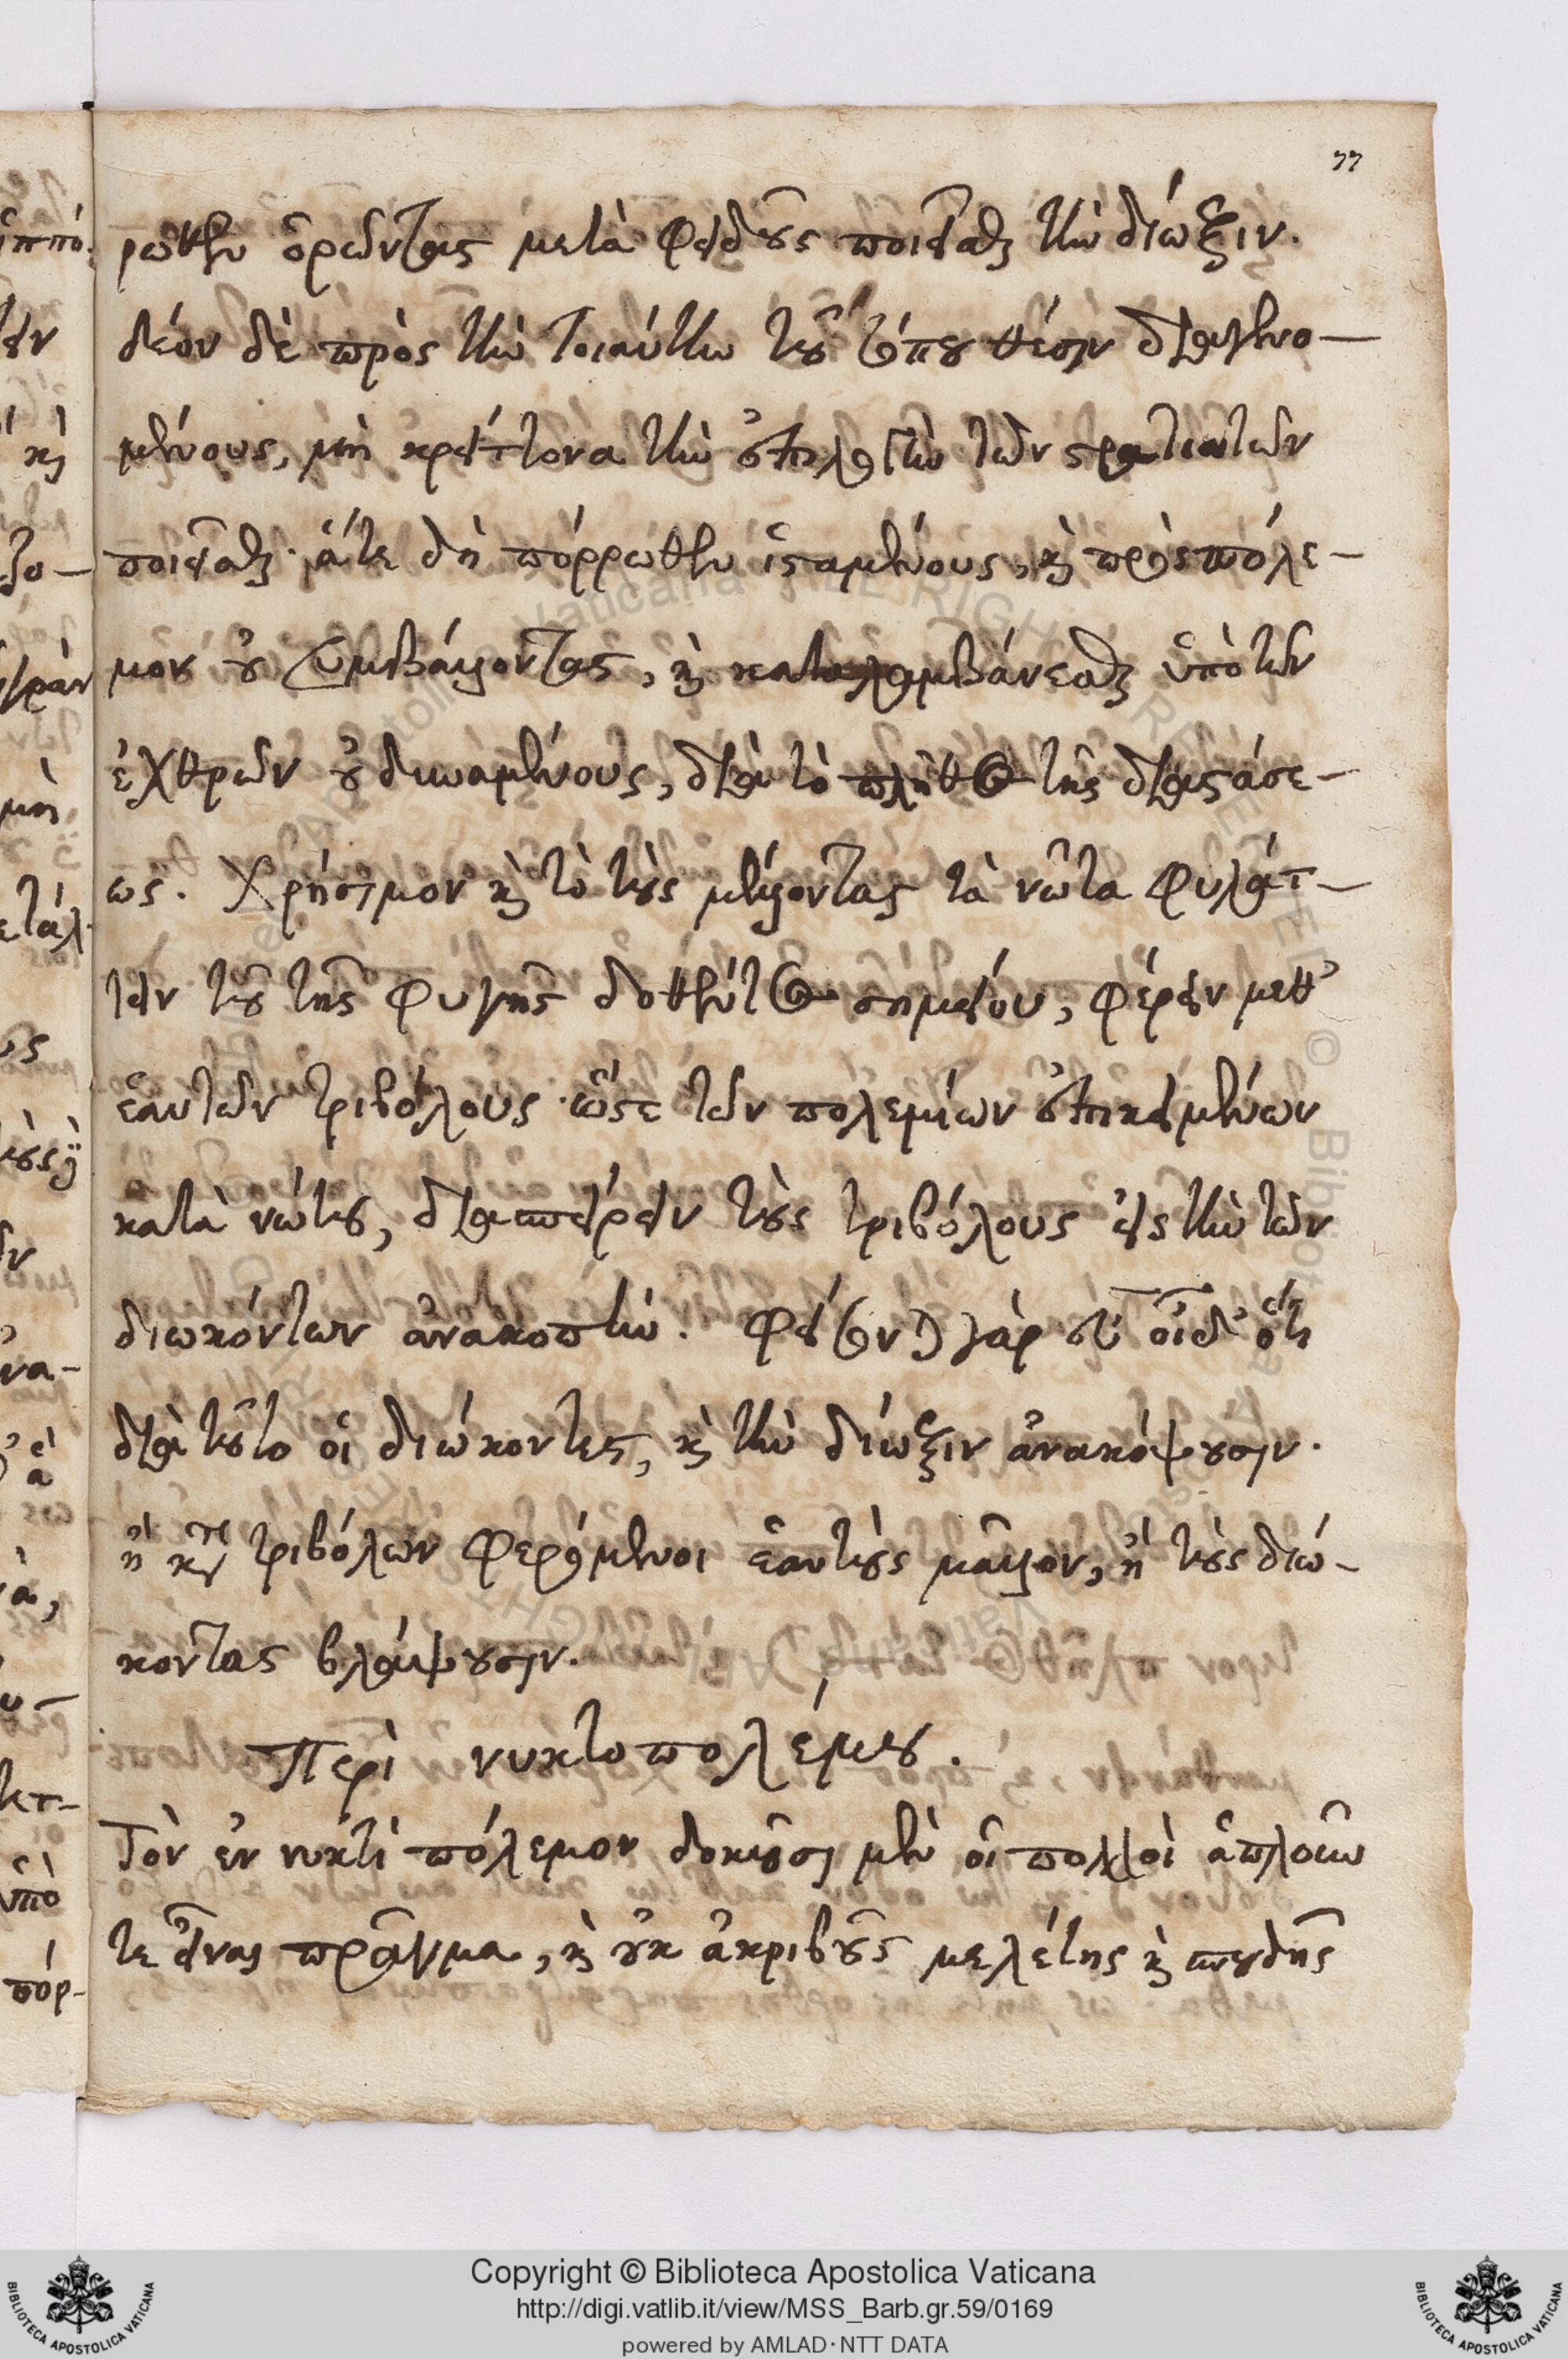 77
ρωθεν ὁρῶντας μετὰ φειδοῦς ποιεῖσθαι τὴν δίωξιν.
δέον δὲ πρὸς τὴν τοιαύτην τοῦ τόπου θέσιν διαγενο-
μένους, μὴ κρείττονα τὴν ἐπιλογὴν τῶν στρατιωτῶν
ποιεῖσθαι· ἅτε δὴ πόρρωθεν ἱσταμένους, καὶ πρὸς πόλε-
μον οὐ συμβάλλοντας, καὶ καταλαμβάνεσθαι ὑπὸ τῶν
ἐχθρῶν οὐ δυναμένους, διὰ τὸ πλῆθος τῆς διαστάσε-
ως. Χρήσιμον καὶ τὸ τοὺς μέλλοντας τὰ νῶτα φυλάτ-
τειν τοῦ τῆς φυγῆς δοθέντος σημείου, φέρειν μεθ'
ἑαυτῶν τριβόλους· ὥστε τῶν πολεμίων ἐπικειμένων
κατὰ νώτου, διασπείρειν τοὺς τριβόλους εἰς τὴν τῶν
διωκόντων ἀνακοπήν. φείσονται γὰρ εὖ οἶδ' ὅτι
διὰ τοῦτο οἱ διώκοντες, καὶ τὴν δίωξιν ἀνακόψουσιν.
ἢ κατὰ τῶν τριβόλων φερόμενοι ἑαυτοὺς μᾶλλον, ἢ τοὺς διώ-
κοντας βλάψουσιν.
Περὶ νυκτοπολέμου.
Τὸν ἐν νυκτὶ πόλεμον δοκοῦσι μὲν οἱ πολλοὶ ἁπλοϊκόν
τε εἶναι πρᾶγμα, καὶ οὐκ ἀκριβοῦς μελέτης καὶ σπουδῆς
Copyright © Biblioteca Apostolica Vaticana
http://digi.vatlib.it/view/MSS_Barb.gr.59/0169
powered by AMLAD·NTT DATA